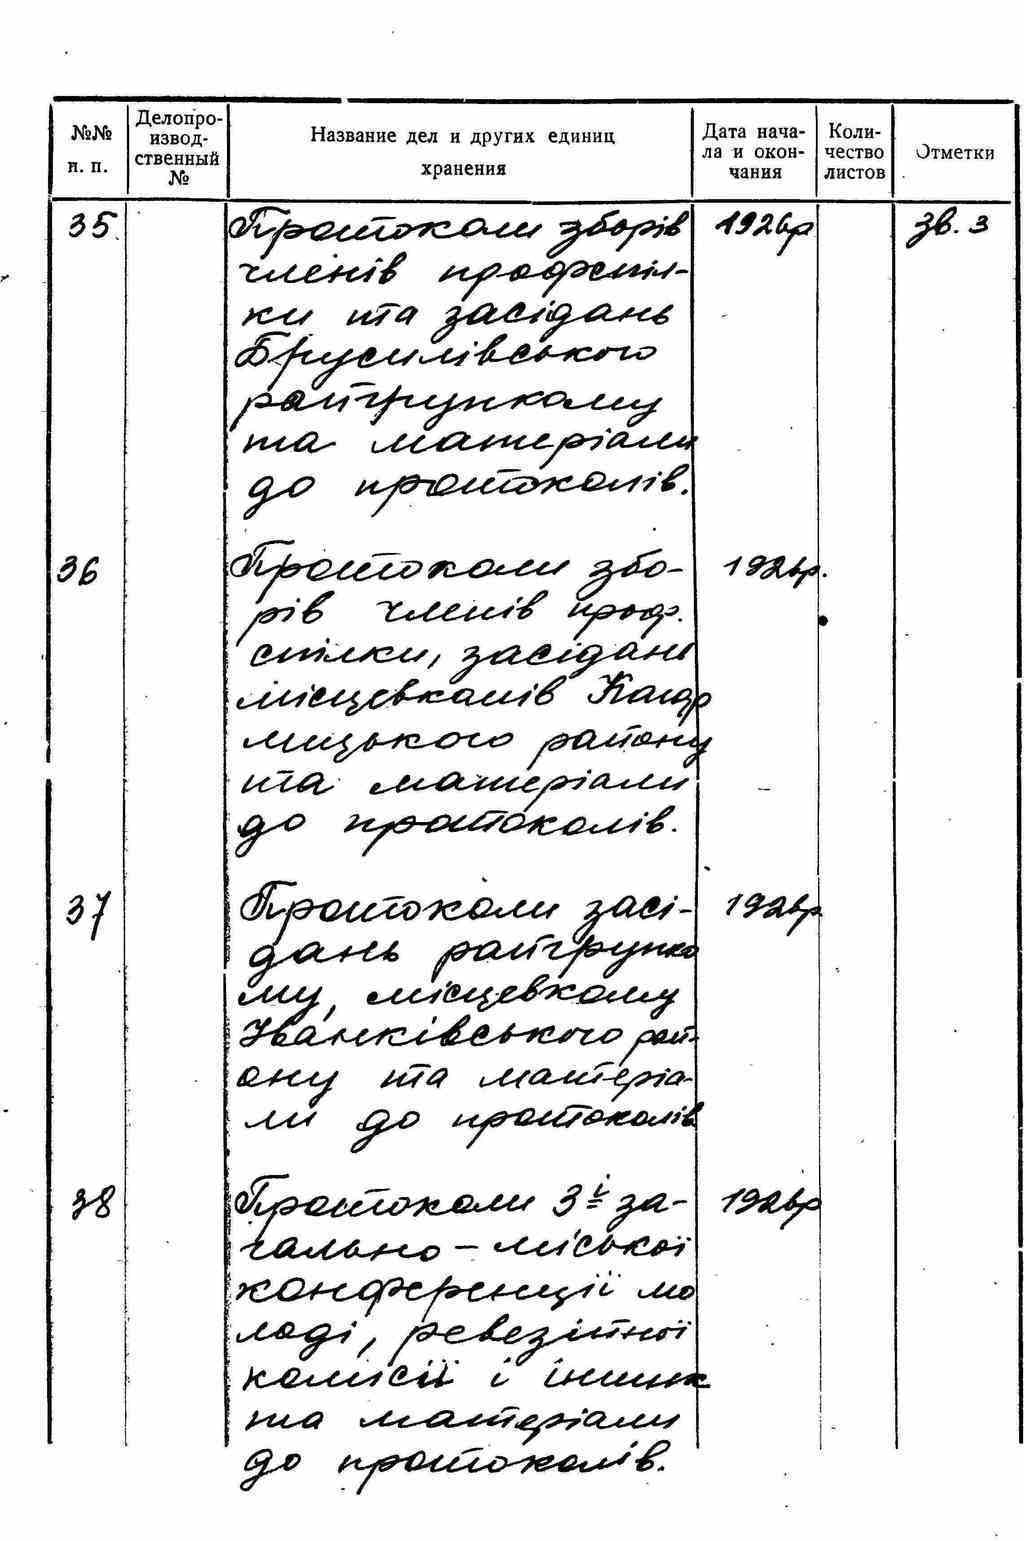 №№ п. п.
Делопро-
извод-
ственный
№
Название дел и других единиц
хранения
Дата нача-
ла и окон-
чания
Коли-
чество
листов
Отметки
35. Протоколи зборів 1926р зв. 3
членів профспіл-
ки та засідань
Брусилівського
райгрупкому
та матеріали
до протоколів.
36 Протоколи збо- 1926р.
рів членів проф.
спілки, засідань
місцевкомів Кагар
лицького району
та матеріали
до протоколів.
37 Протоколи засі- 1926р.
дань райгрупко
му, місцевкому
Іванківського рай-
ону та матеріа-
ли до протоколів
38 Протоколи 3ї за- 1926р
гально-міської
конференції мо
лоді, ревезійної
комісії і інших
та матеріали
до протоколів.